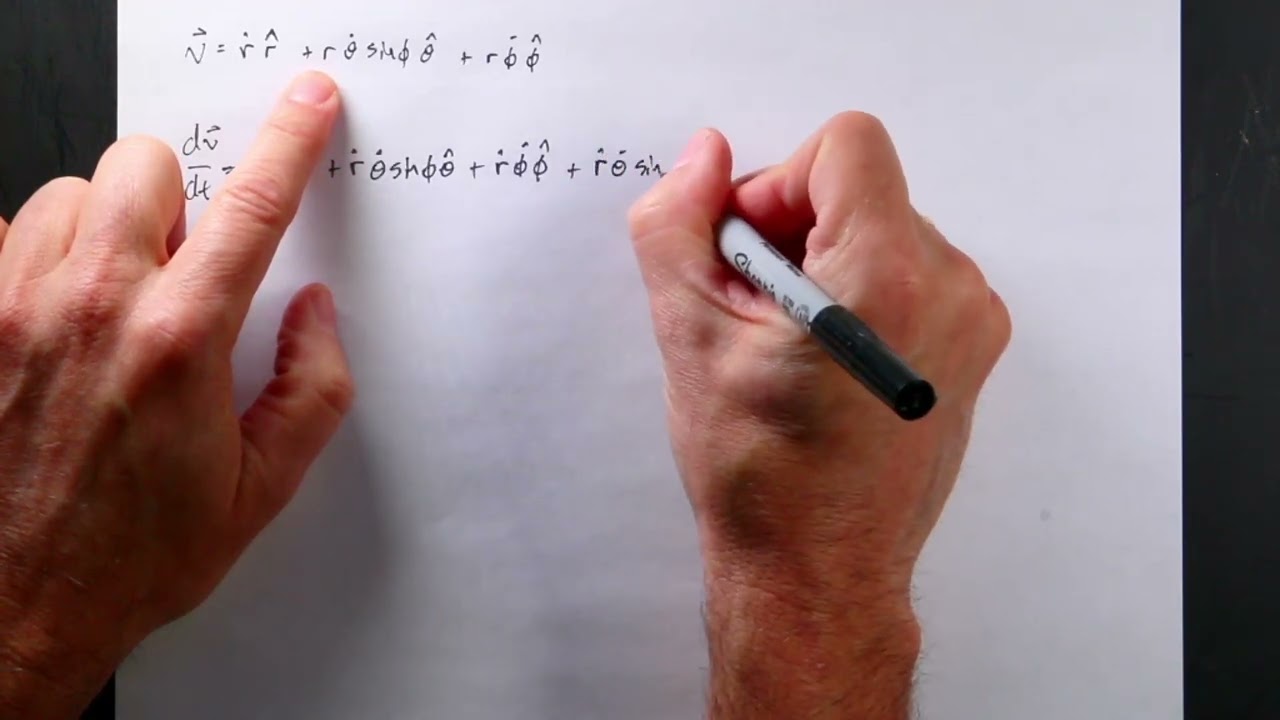 v⃗ = ṙ r̂ + r θ̇ sinϕ θ̂ + r ϕ̇ ϕ̂
dv⃗/dt = + ṙ θ̇ sinϕ θ̂ + ṙ ϕ̇ ϕ̂ + ṙ θ̇ sin
Sharpie